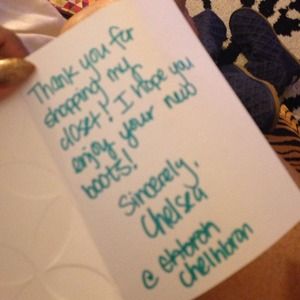 Thank you for
shopping my
closet! I hope you
enjoy your new
boots!
Sincerely,
Chelsea
@